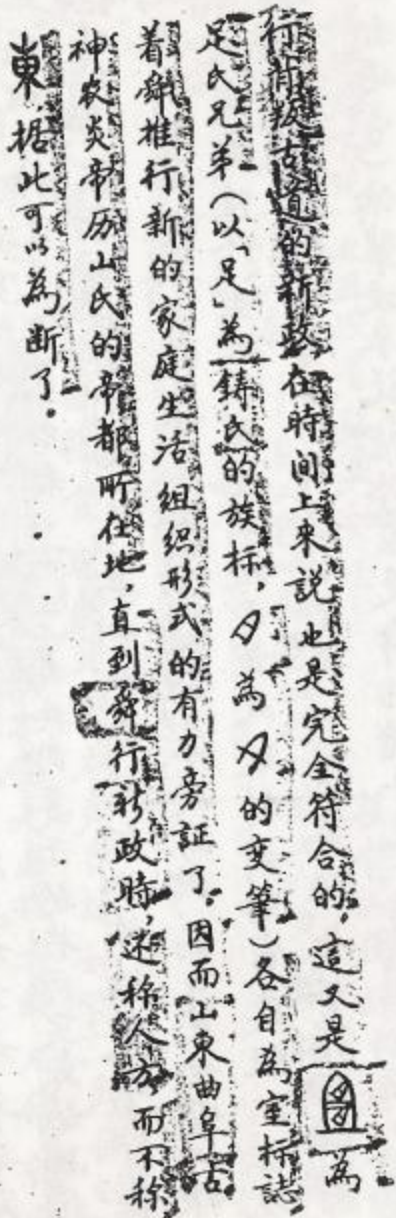 行背叛古道的新政，在時间上來説也是完全符合的，這又是為
足氏兄弟（以「足」為鋳氏的族标，为的变筆）各自為室标誌
着舜推行新的家庭生活组织形式的有力旁証了。因而山東曲阜古
神农炎帝历山氏的帝都所在地，直到舜行新政時，还称人方而不称
東，据此可以為断了。